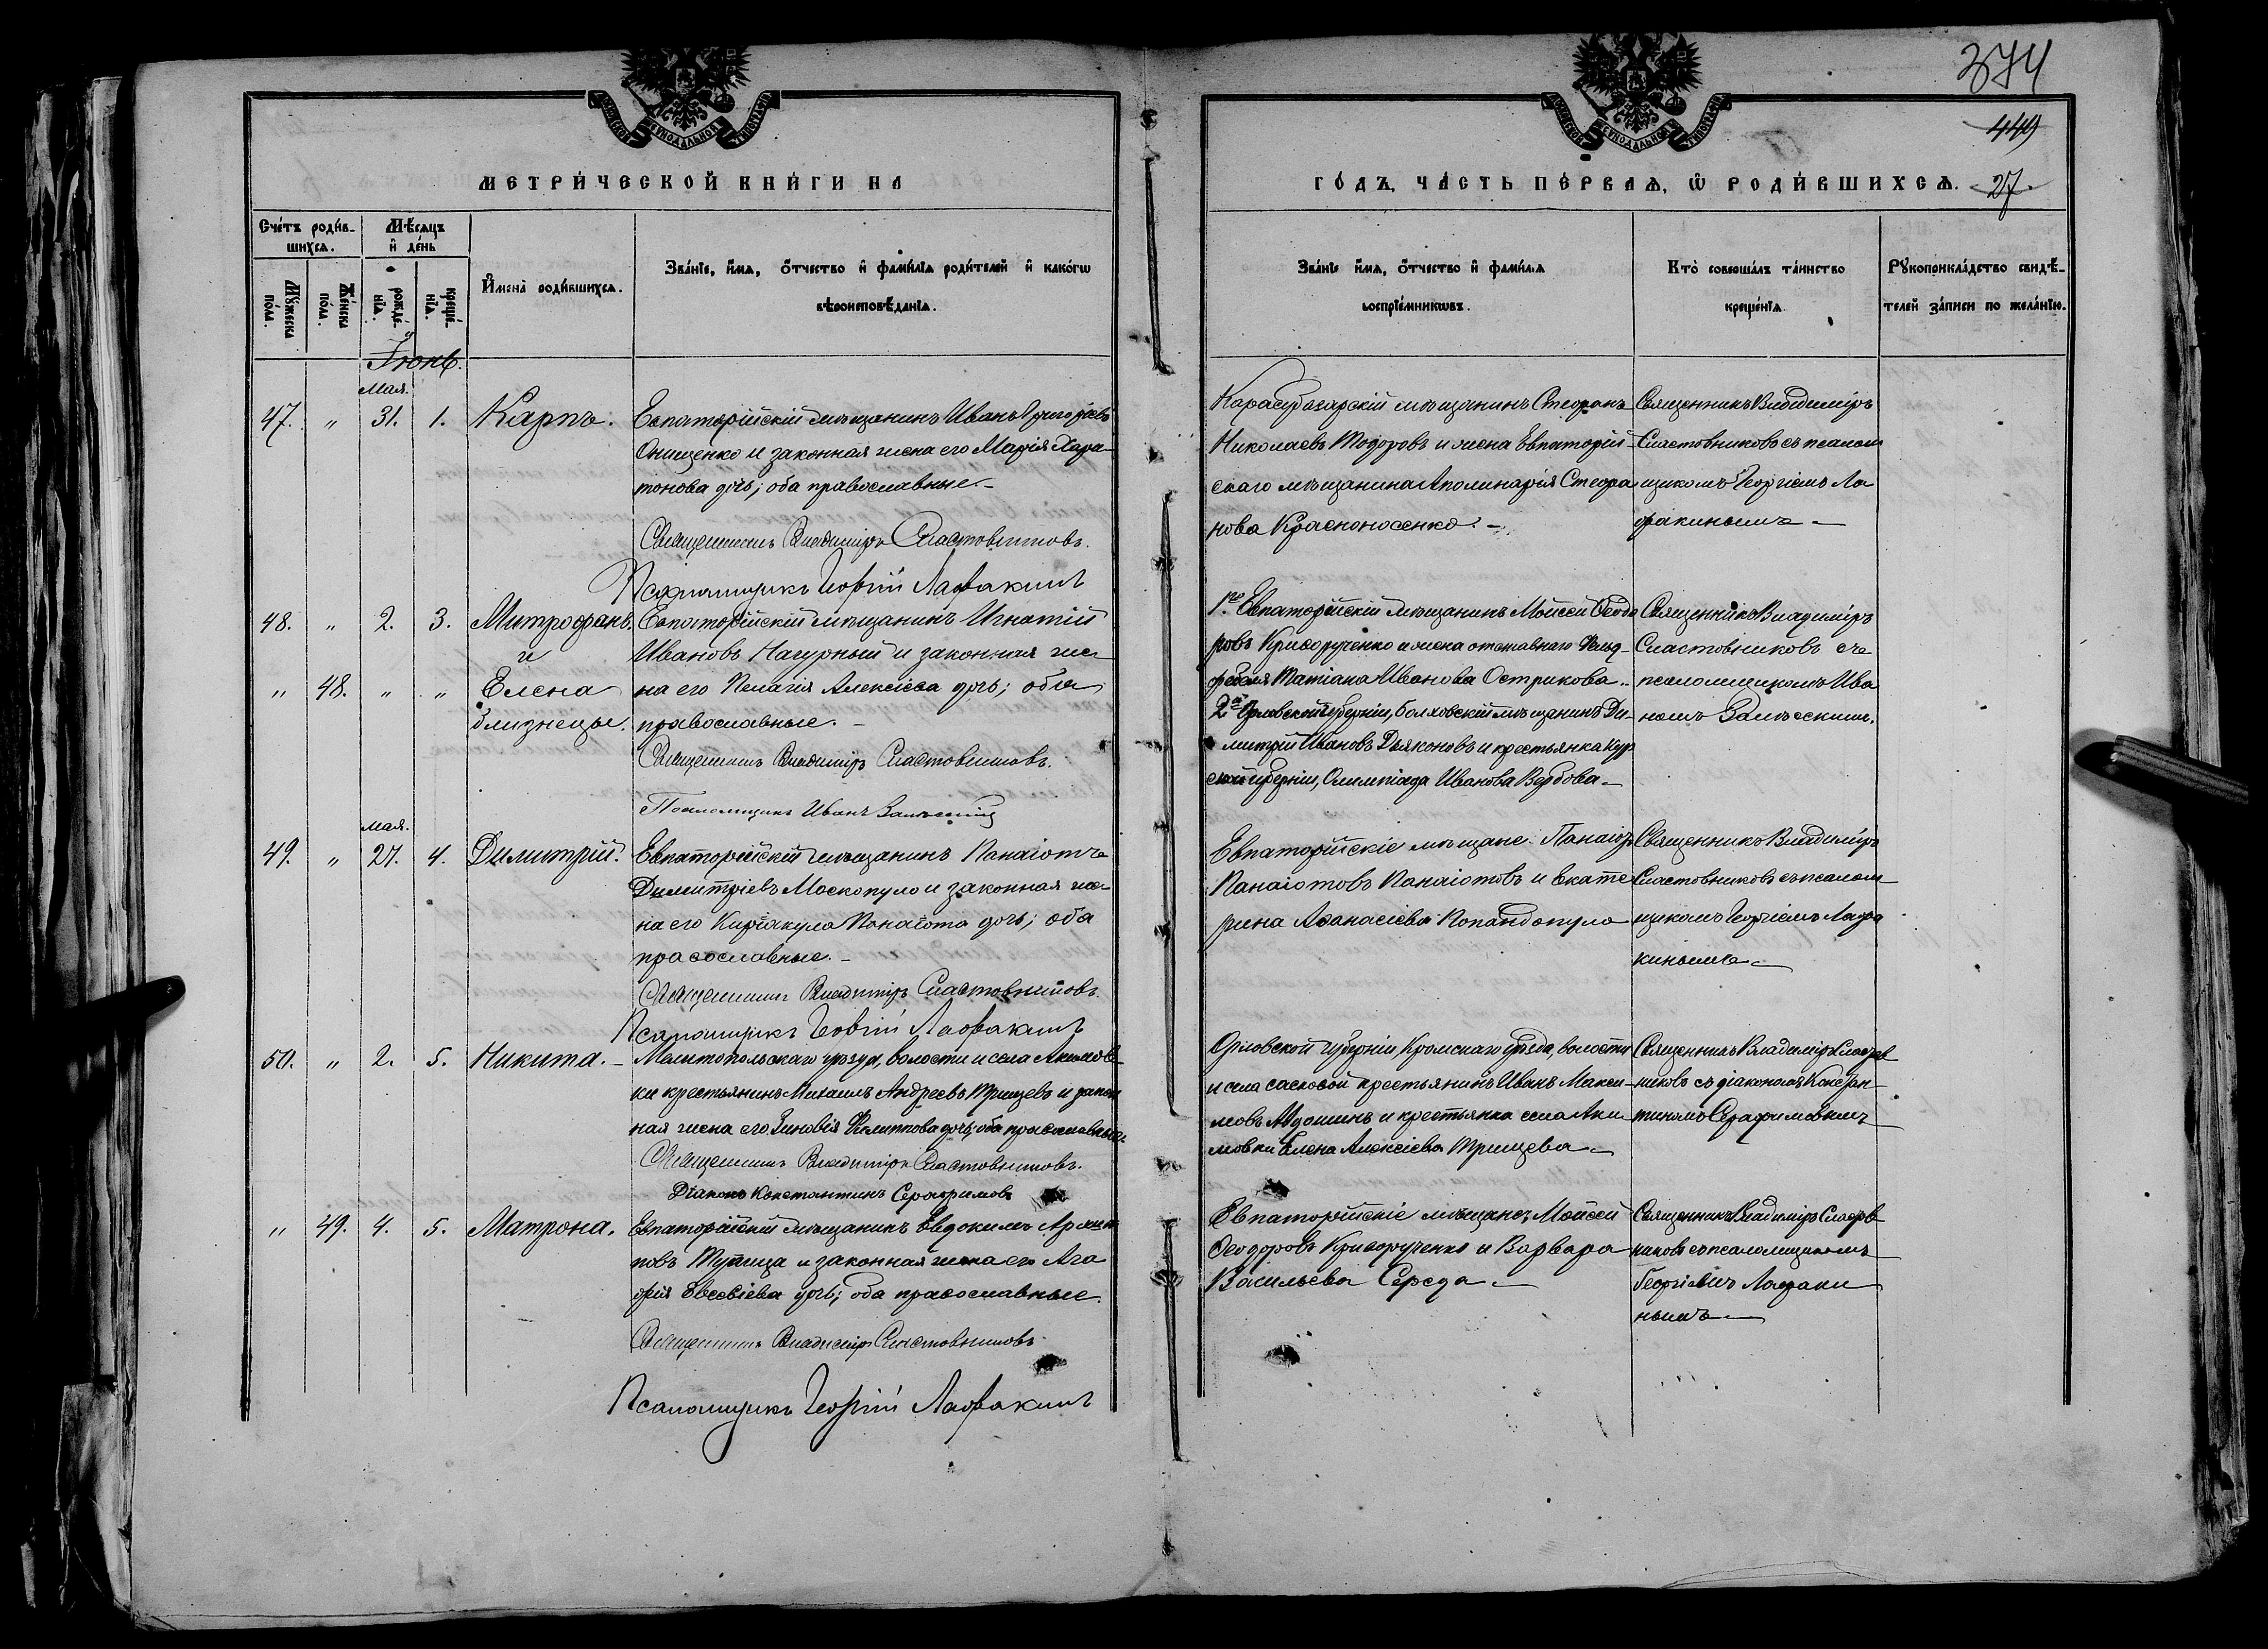 374
449
27.
МОСКОВСКОЙ СѴНОДАЛЬНОЙ ТИПОГРАФІИ
МОСКОВСКОЙ СѴНОДАЛЬНОЙ ТИПОГРАФІИ
МЕТРИ́ЧЕСКОЙ КНИ́ГИ НА
ГО́ДЪ, ЧА́СТЬ ПЕ́РВАѦ, Ѡ҆ РОДИ́ВШИХСѦ.
Сче́тъ роди́в-
шихсѧ.
Мѣ́сѧцъ
и҆ де́нь
Мꙋ́жеска
по́ла.
Же́нска
по́ла.
рожде́-
нїѧ.
креще́-
нїѧ.
И҆мена̀ роди́вшихсѧ.
Зва́нїе, и҆́мѧ, ѻ҆́тчество и҆ фамі́лїѧ роди́телей и҆ како́гѡ
вѣроисповѣ́данїѧ.
Зва́нїе и҆́мѧ, ѻ҆́тчество и҆ фамі́лїѧ
воспрїе́мникѡвъ.
Кто̀ соверша́лъ та́инство
креще́нїѧ.
Рꙋкоприкла́дство свидѣ́-
телей за́писи по жела́нїю.
Іюнь.
Мая.
47. " 31. 1. Карпъ.
Евпаторійскій мѣщанинъ Иванъ Григорьевъ
Онищенко и законная жена его Марія Хари-
тонова дочь; оба православные.-
Священникъ Владиміръ Сластовниковъ.
Псаломщикъ Георгій Лафакинъ
Карасубазарскій мѣщанинъ Стефанъ
Николаевъ Тодоровъ и жена Евпаторій-
скаго мѣщанина Аполинарія Стефа-
нова Красноносенко.-
Священникъ Владиміръ
Сластовниковъ съ псалом
щикомъ Георгіемъ Ла
факинымъ-
48. " 2. 3. Митрофанъ.
и
" 48. " " Елена
близнецы.
Евпаторійскій мѣщанинъ Игнатій
Ивановъ Нагурный и законная же-
на его Пелагія Алексіева дочь; оба
православные.-
Священникъ Владиміръ Сластовниковъ.
Псаломщикъ Иванъ Залѣсскій
1го Евпаторійскій мѣщанинъ Мойсей Ѳеодо
ровъ Криворученко и жена отставнаго Фельд-
фебеля Татіана Иванова Острикова.-
2й Орловской губерніи, болховскій мѣщанинъ Ди-
митрій Ивановъ Дьяконовъ и крестьянка Кур
ской губерніи, Олимпіада Иванова Вербова-
Священникъ Владиміръ
Сластовниковъ съ
псаломщикомъ Ива
номъ Залѣсскимъ.
мая.
49. " 27. 4. Димитрій.
Евпаторійскій мѣщанинъ Панаіотъ
Димитріевъ Москопуло и законная же-
на его Киріакула Панаіота дочь; оба
православные.-
Священникъ Владиміръ Сластовниковъ.
Псаломщикъ Георгій Лафакинъ
Евпаторійскіе мѣщане: Панаіотъ
Панаіотовъ Панаіотовъ и Екате
рина Аѳанасіева Попандопуло
Священникъ Владиміръ
Сластовниковъ съ псалом
щикомъ Георгіемъ Лафа
кинымъ-
50. " 2. 5. Никита.-
Мелитопольскаго уѣзда, волости и села Акимов-
ки крестьянинъ Михаилъ Андреевъ Трищевъ и закон
ная жена его Зиновія Филиппова дочь; оба православные
Священникъ Владиміръ Сластовниковъ.
Діаконъ Константинъ Серафимовъ
Орловской губерніи Кромскаго уѣзда, волости
и села Сасковой крестьянинъ Иванъ Макси-
мовъ Авдошинъ и крестьянка села Аки
мовки Елена Алексіева Трищева-
Священникъ Владиміръ Сластов
никовъ съ діакономъ Констан
тиномъ Серафимовымъ
" 49. 4. 5. Матрона.
Евпаторійскій мѣщанинъ Евдокимъ Архип
повъ и законная жена его Ага
фія Евсевіева дочь; оба православные.
Священникъ Владиміръ Сластовниковъ
Псаломщикъ Георгій Лафакинъ
Евпаторійскіе мѣщане, Мойсей
Ѳеодоровъ Криворученко и Варвара
Васильева Середа-
Священникъ Владиміръ Сластов
никовъ съ псаломщикомъ
Георгіемъ Лафаки
нымъ-